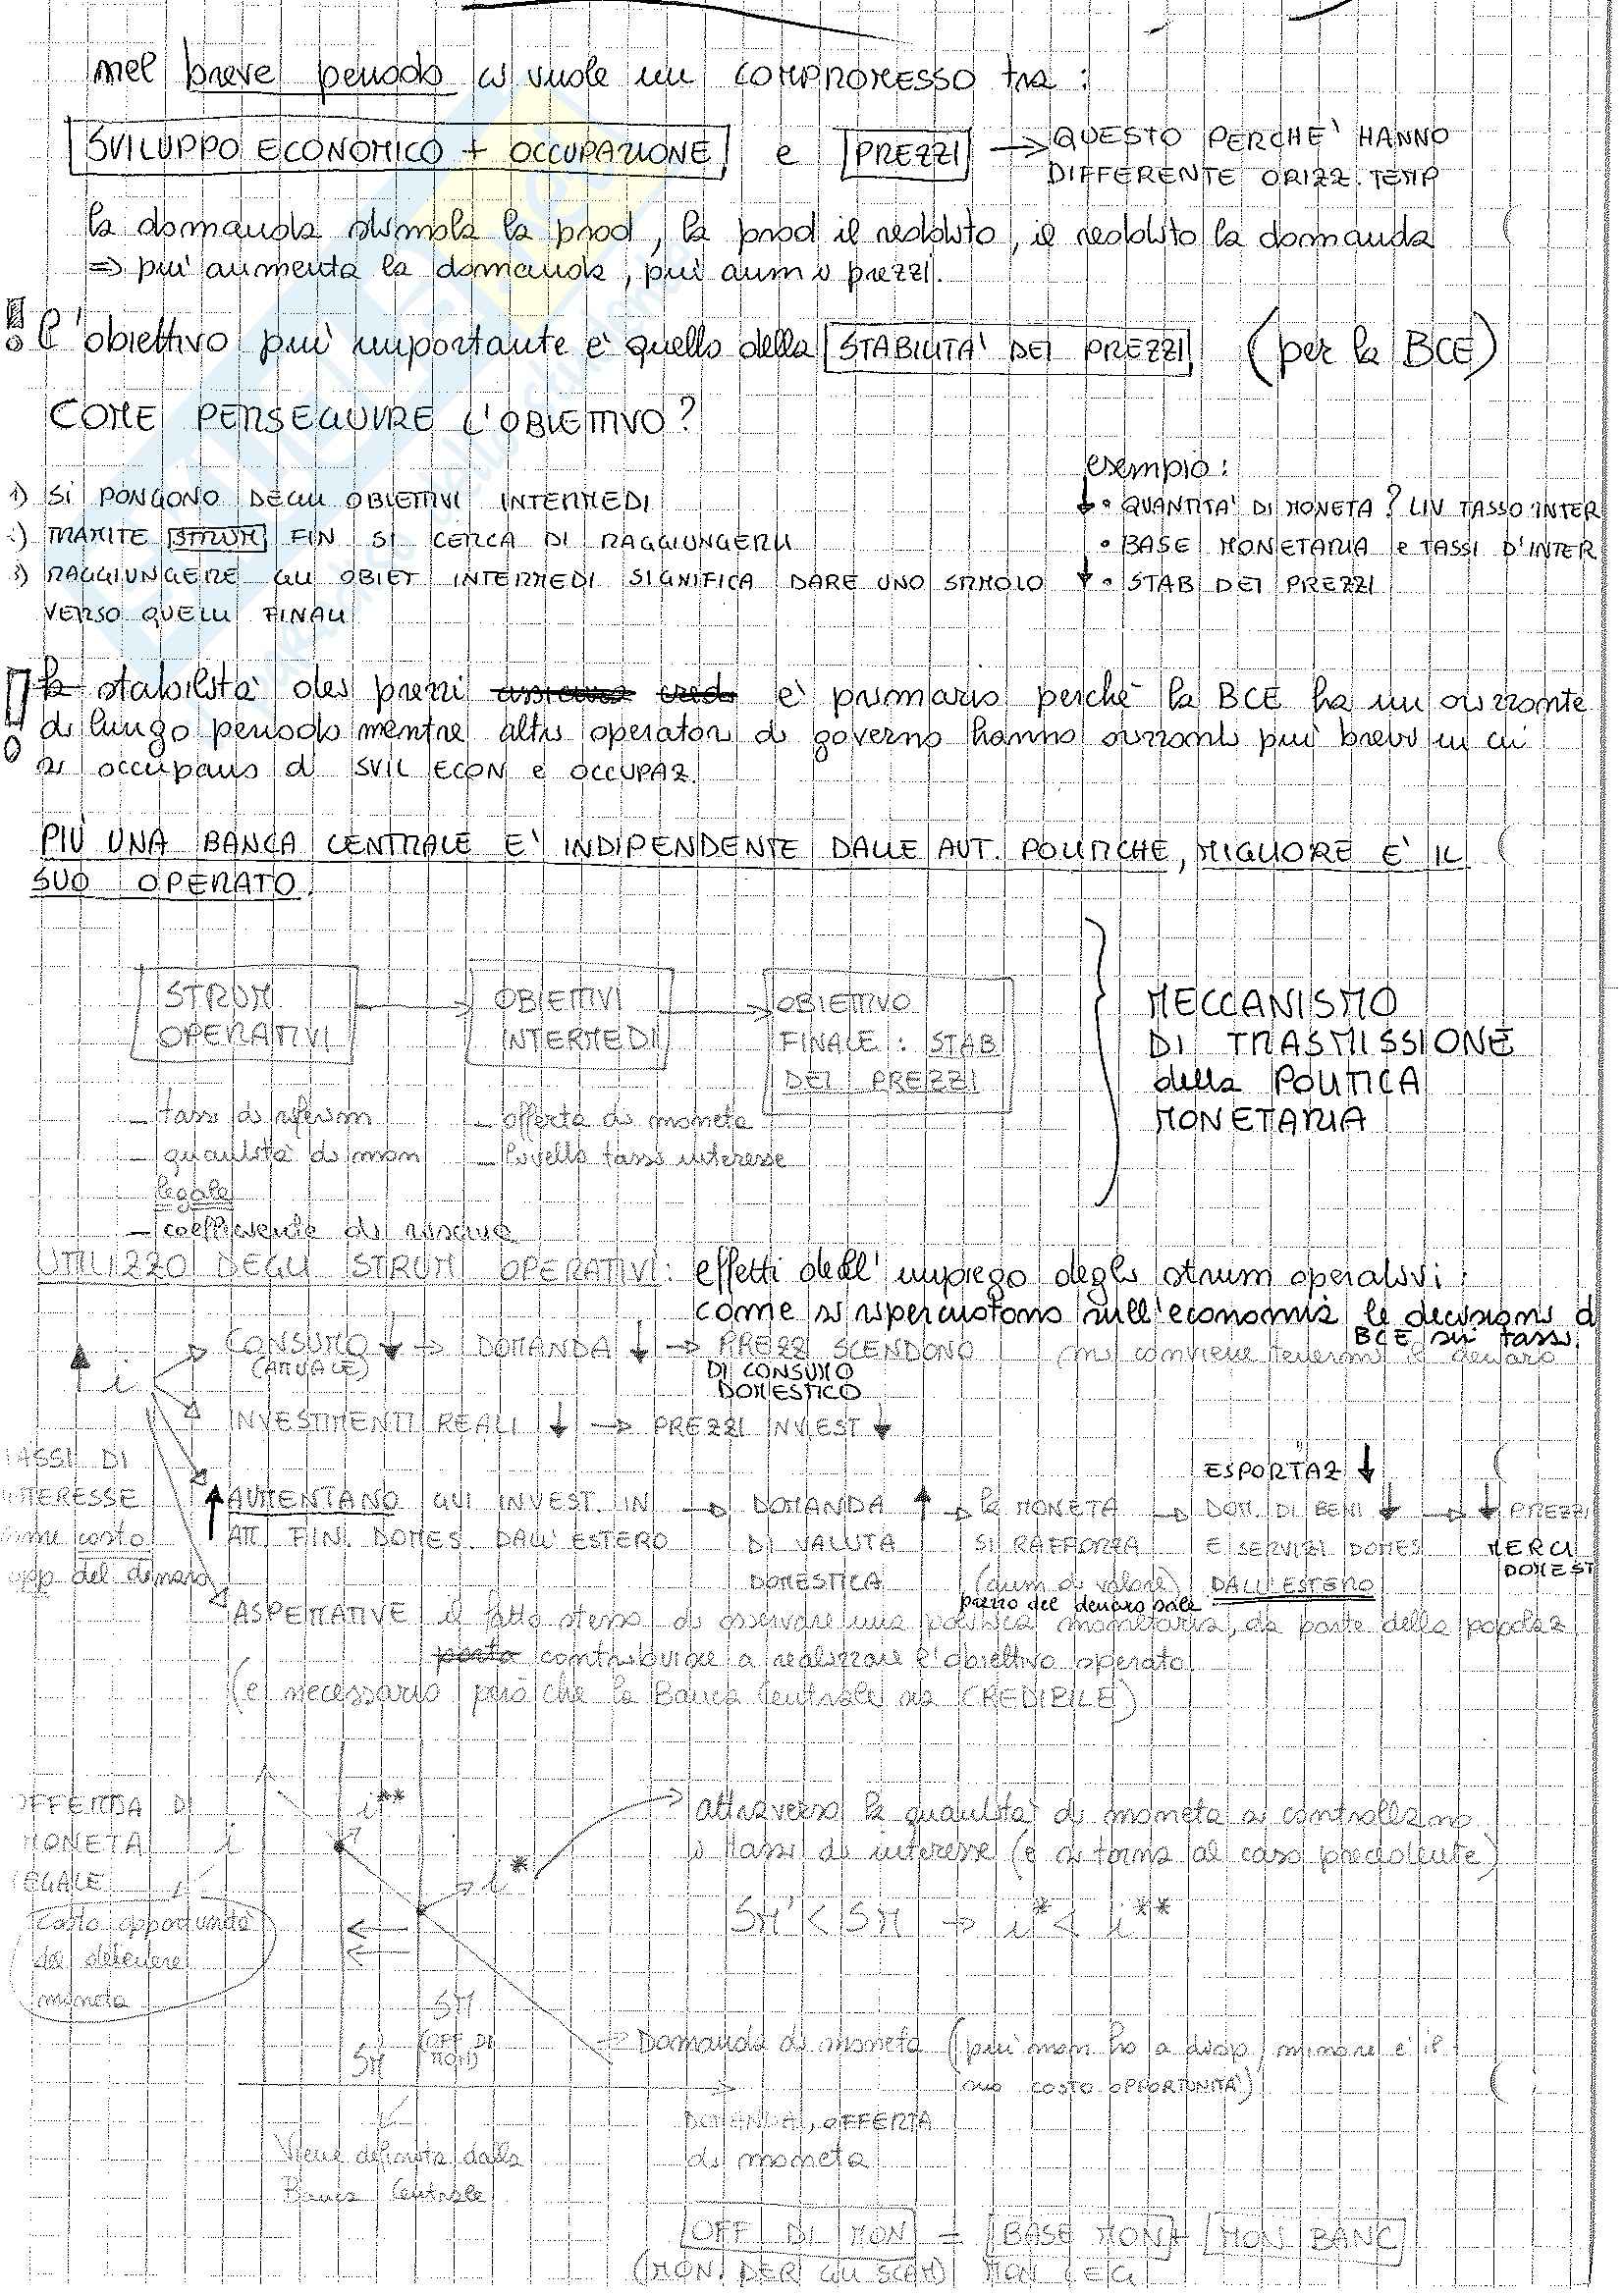 nel breve periodo ci vuole un COMPROMESSO tra :
SVILUPPO ECONOMICO + OCCUPAZIONE e PREZZI → QUESTO PERCHE' HANNO
DIFFERENTE ORIZZ. TEMP
la domanda stimola la prod, la prod il reddito, il reddito la domanda
⇒ più aumenta la domanda, più aum i prezzi.
! l'obiettivo più importante è quello della STABILITA' DEI PREZZI (per la BCE)
COME PERSEGUIRE L'OBIETTIVO?
esempio :
1) SI PONGONO DEGLI OBIETTIVI INTERMEDI ↓ • QUANTITA' DI MONETA? LIV TASSO INTER
:) TRAMITE STRUM FIN SI CERCA DI RAGGIUNGERLI • BASE MONETARIA e TASSI D'INTER
3) RAGGIUNGERE GLI OBIET INTERMEDI SIGNIFICA DARE UNO STIMOLO ↓ • STAB DEI PREZZI
VERSO QUELLI FINALI
! la stabilità dei prezzi è primario perchè la BCE ha un orizzonte
di lungo periodo mentre altri operatori di governo hanno orizzonti più brevi in cui
si occupano di SVIL ECON e OCCUPAZ.
PIÙ UNA BANCA CENTRALE E' INDIPENDENTE DALLE AUT. POLITICHE, MIGLIORE E' IL
SUO OPERATO.
STRUM. → OBIETTIVI → OBIETTIVO
OPERATIVI INTERMEDI FINALE : STAB
DEI PREZZI
MECCANISMO
DI TRASMISSIONE
della POLITICA
MONETARIA
– tassi di riferim – offerta di moneta
– quantità di mon – livello tassi interesse
legale
– coefficiente di riserva
UTILIZZO DEGLI STRUM OPERATIVI: effetti dell'impiego degli strum operativi :
come si ripercuotono sull'economia le decisioni d
BCE sui tassi.
↑ i → CONSUMO ↓ → DOMANDA ↓ → PREZZI SCENDONO (mi conviene tenermi il denaro
(ATTUALE) DI CONSUMO
DOMESTICO
INVESTIMENTI REALI ↓ → PREZZI INVEST ↓
TASSI DI ESPORTAZ ↓
INTERESSE ↑ AUMENTANO GLI INVEST. IN → DOMANDA ↑ → la MONETA → DOM. DI BENI ↓ → ↓ PREZZI
come costo ATT. FIN. DOMES. DALL'ESTERO DI VALUTA SI RAFFORZA E SERVIZI DOMES MERCI
opp del denaro DOMESTICA (aum di valore) DALL'ESTERO DOMEST
prezzo del denaro sale
ASPETTATIVE il fatto stesso di osservare una politica monetaria, da parte della popolaz
contribuire a realizzare l'obiettivo operato
(è necessario però che la Banca Centrale sia CREDIBILE)
OFFERTA DI i**
MONETA i
LEGALE
attraverso la quantità di moneta si controllano
i tassi di interesse (e si torna al caso precedente)
i*
costo opportunità
di detenere
moneta
SM' < SM → i* < i**
SM
(OFF DI
MON)
SM'
→ Domanda di moneta (più mon ho a disp, minore è il
suo COSTO OPPORTUNITA')
DOMANDA, OFFERTA
di moneta
Viene definita dalla
Banca Centrale
OFF DI MON = BASE MON + MON BANC
(MON. PER GLI SCAM) MON LEG